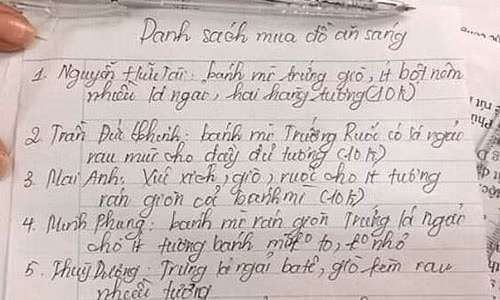 Danh sách mua đồ ăn sáng
1. Nguyễn Hữu Tài: bánh mì trứng giò, ít bột nêm
nhiều lá ngac, hai hàng tương (10k)
2. Trần Đức Chinh: bánh mì Trứng Ruốc có lá ngải
rau mùi cho đầy đủ tương (10k)
3. Mai Anh: Xúc xích, giò, ruốc cho ít tương
rán giòn cả bánh mì (10k)
4. Minh Phang: bánh mì rán giòn Trứng lá ngải
cho ít tương bánh to, nhỏ
5. Thuỳ Dương: Trứng lá ngải batê, giò kèm rau
nhiều tương